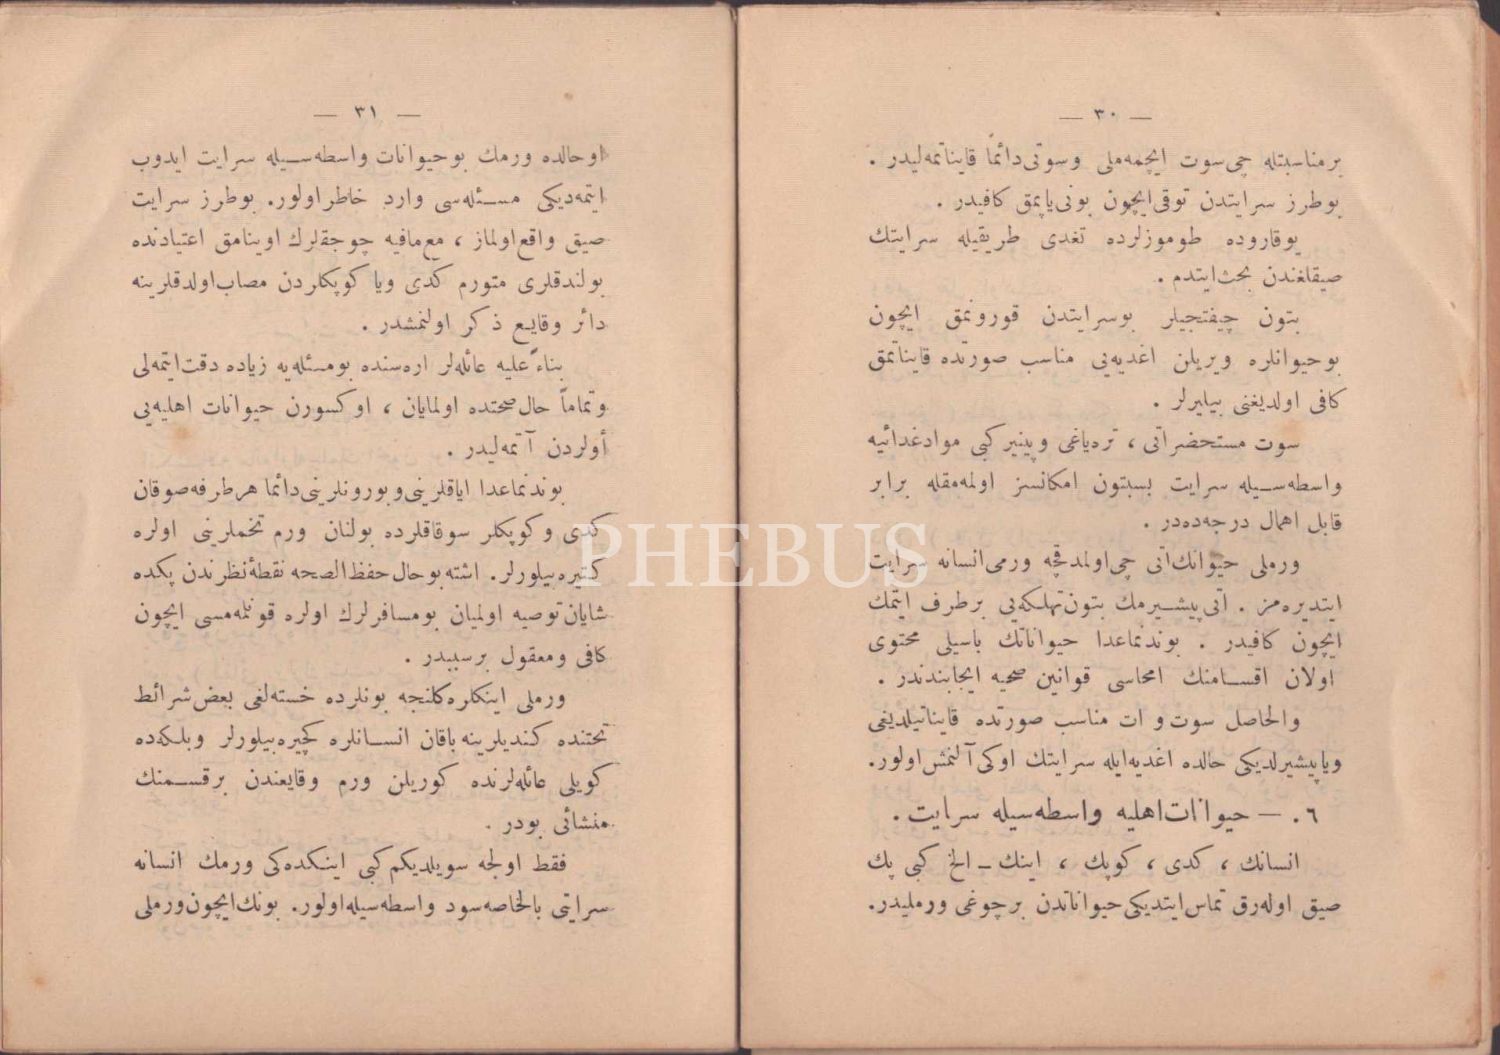 — ٣٠ —
برمناسبتله چی سوت ایچمه‌ملی وسوتی دائماً قایناتمه‌لیدر .
بوطرز سرایتدن توقی ایچون بونی یاپمق کافیدر .
یوقاروده طوموزلرده تغدی طریقیله سرایتك
صیقلغندن بحث ایتدم .
بتون چیفتجیلر بوسرایتدن قورونمق ایچون
بوحیوانلره ویریلن اغدیه‌یی مناسب صورتده قایناتمق
کافی اولدیغنی بیلیرلر .
سوت مستحضراتی ، تره‌یاغی وپینیر کبی موادغدائیه
واسطه‌سیله سرایت بسبتون امکانسز اولمه‌مقله برابر
قابل اهمال درجه‌ده‌در .
ورملی حیوانك اتی چی اولمدقچه ورمی انسانه سرایت
ایتدیره‌مز . اتی پیشیرمك بتون تهلکه‌یی برطرف ایتمك
ایچون کافیدر . بوندنماعدا حیواناتك باسیلی محتوی
اولان اقسامنك امحاسی قوانین صحیه ایجابندندر .
والحاصل سوت و ات مناسب صورتده قایناتیلدیغی
ویاپیشیرلدیکی حالده اغدیه‌ایله سرایتك اوکی آلنمش اولور.
٦. — حیوانات اهلیه واسطه‌سیله سرایت .
انسانك ، کدی ، کوپك ، اینك – الخ کبی پك
صیق اوله‌رق تماس ایتدیکی حیواناتدن برچوغی ورملیدر.
— ٣١ —
اوحالده ورمك بوحیوانات واسطه‌سیله سرایت ایدوب
ایتمه‌دیکی مسئله‌سی وارد خاطر اولور. بوطرز سرایت
صیق واقع اولماز ، مع‌مافیه چوجقلرك اوینامق اعتیادنده
بولندقلری متورم کدی ویا کوپکلردن مصاب اولدقلرینه
دائر وقایع ذکر اولنمشدر .
بناءً علیه عائله‌لر اره‌سنده بومسئله‌یه زیاده دقت ایتمه‌لی
وتماماً حال صحتده اولمایان ، اوکسورن حیوانات اهلیه‌یی
أولردن آتمه‌لیدر .
بوندنماعدا ایاقلرینی وبورونلرینی دائما هرطرفه صوقان
کدی وکوپکلر سوقاقلرده بولنان ورم تخملرینی اولره
کتیره‌بیلورلر. اشته بوحال حفظ‌الصحه نقطۀ نظرندن پکده
شایان توصیه اولمیان بومسافرلرك اولره قونلمه‌مسی ایچون
کافی ومعقول برسببدر .
ورملی اینکلره کلنجه بونلرده خسته‌لغی بعض شرائط
تحتنده کندیلرینه باقان انسانلره کچیره‌بیلورلر وبلکه‌ده
کویلی عائله‌لرنده کوریلن ورم وقایعندن برقسمنك
منشائی بودر .
فقط اولجه سویلدیکم کبی اینکده‌کی ورمك انسانه
سرایتی بالخاصه سود واسطه‌سیله اولور. بونك ایچون ورملی
PHEBUS